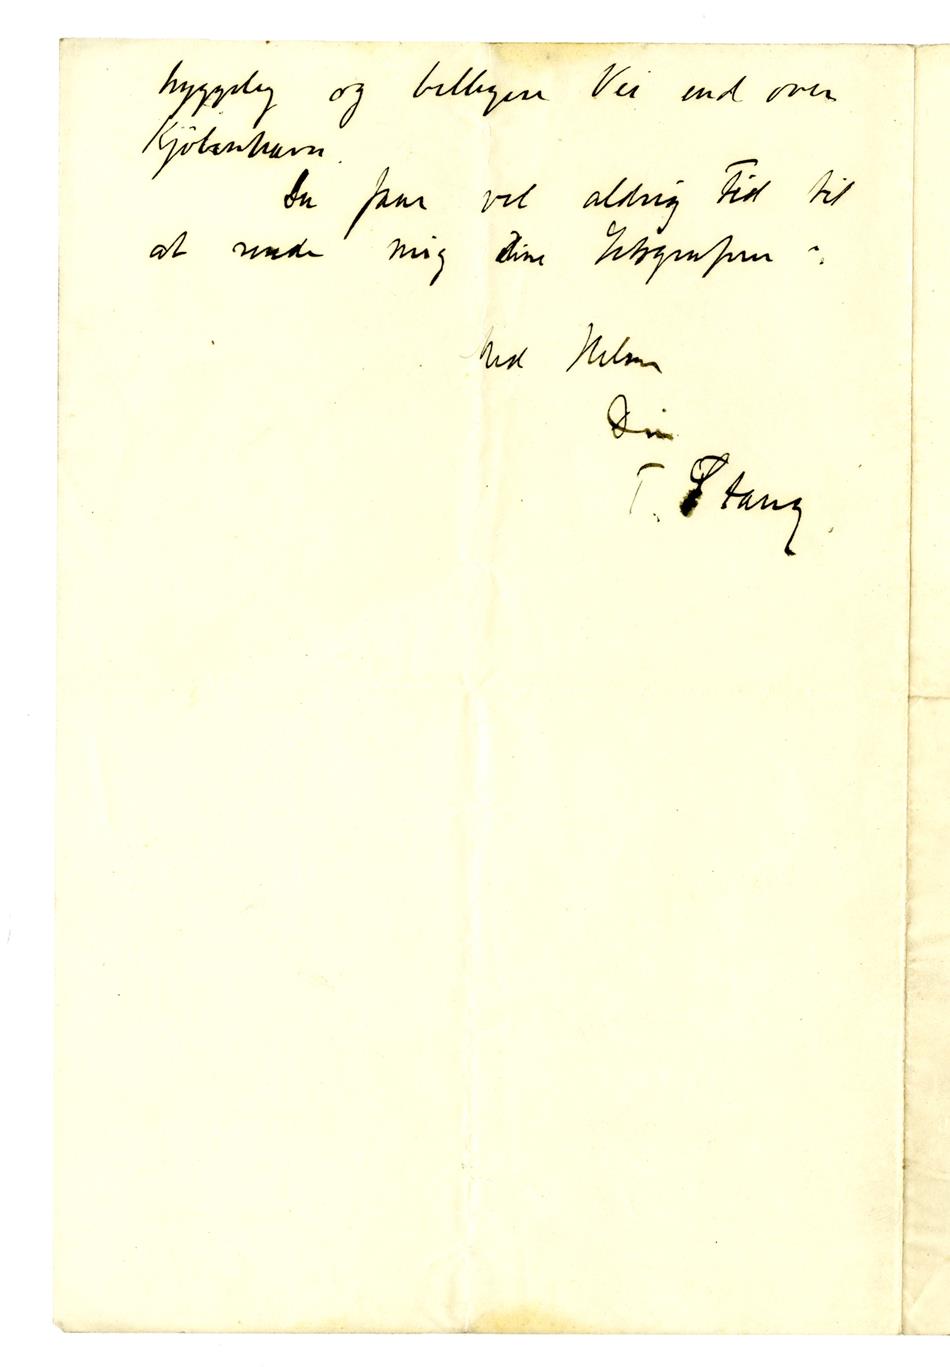 hyggelig og billigere Vei end over
Kjöbenhavn.
Du faar vel aldrig Tid til
at sende mig Dine
Med Hilsen
Din
T. Stang.